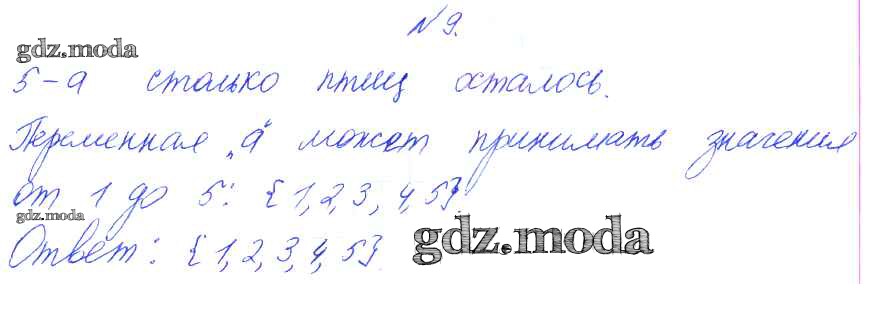 № 9.
gdz.moda
5-а столько птиц осталось.
Переменная „а“ может принимать значения
от 1 до 5: {1,2,3,4,5}.
gdz.moda
Ответ: {1,2,3,4,5}.
gdz.moda